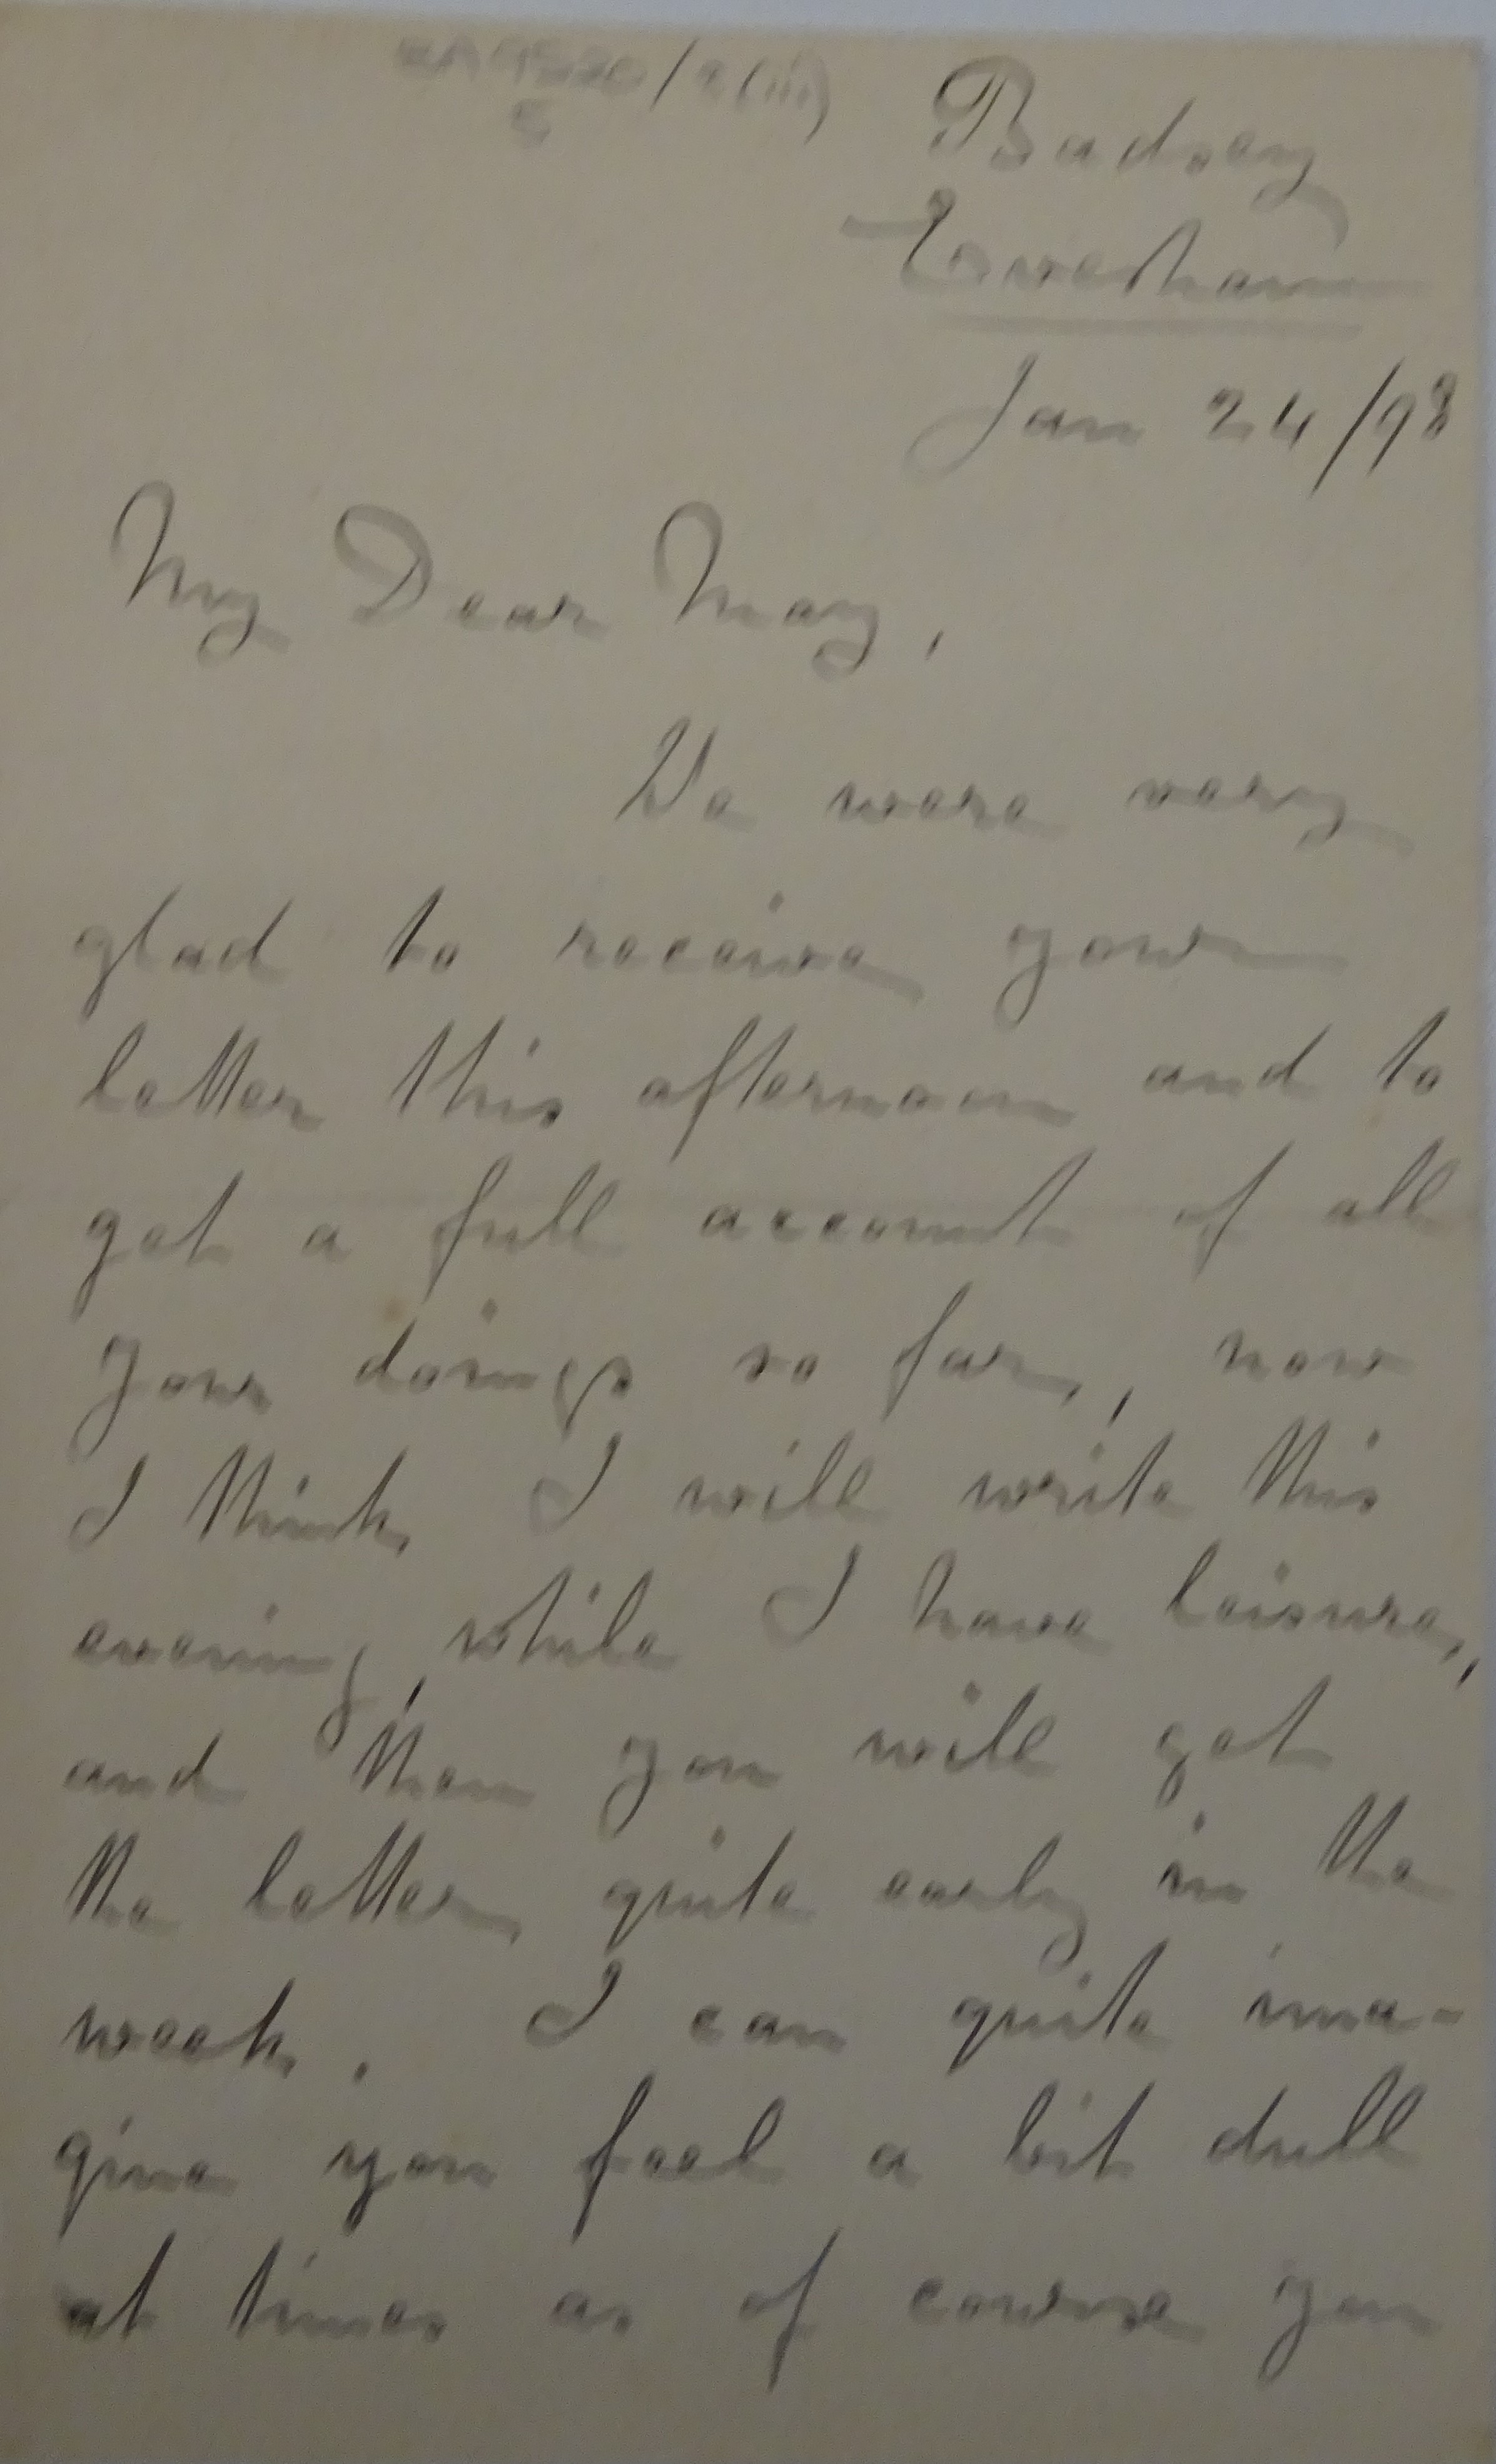 /2(iii)
5
Badsey
Evesham
Jan 24/98
My Dear May,
We were very
glad to receive your
letter this afternoon and to
get a full account of all
your doings so far, now
I think I will write this
evening, while I have leisure,
and then you will get
the letter quite early in the
week. I can quite ima-
gine you feel a bit dull
at times as of course you